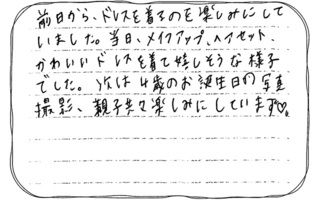 前日から、ドレスを着るのを楽しみにして
いました。当日、メイクアップ、ヘアセット、
かわいいドレスを着て嬉しそうな様子
でした。次は4歳のお誕生日的写真
撮影、親子共々楽しみにしています♡。